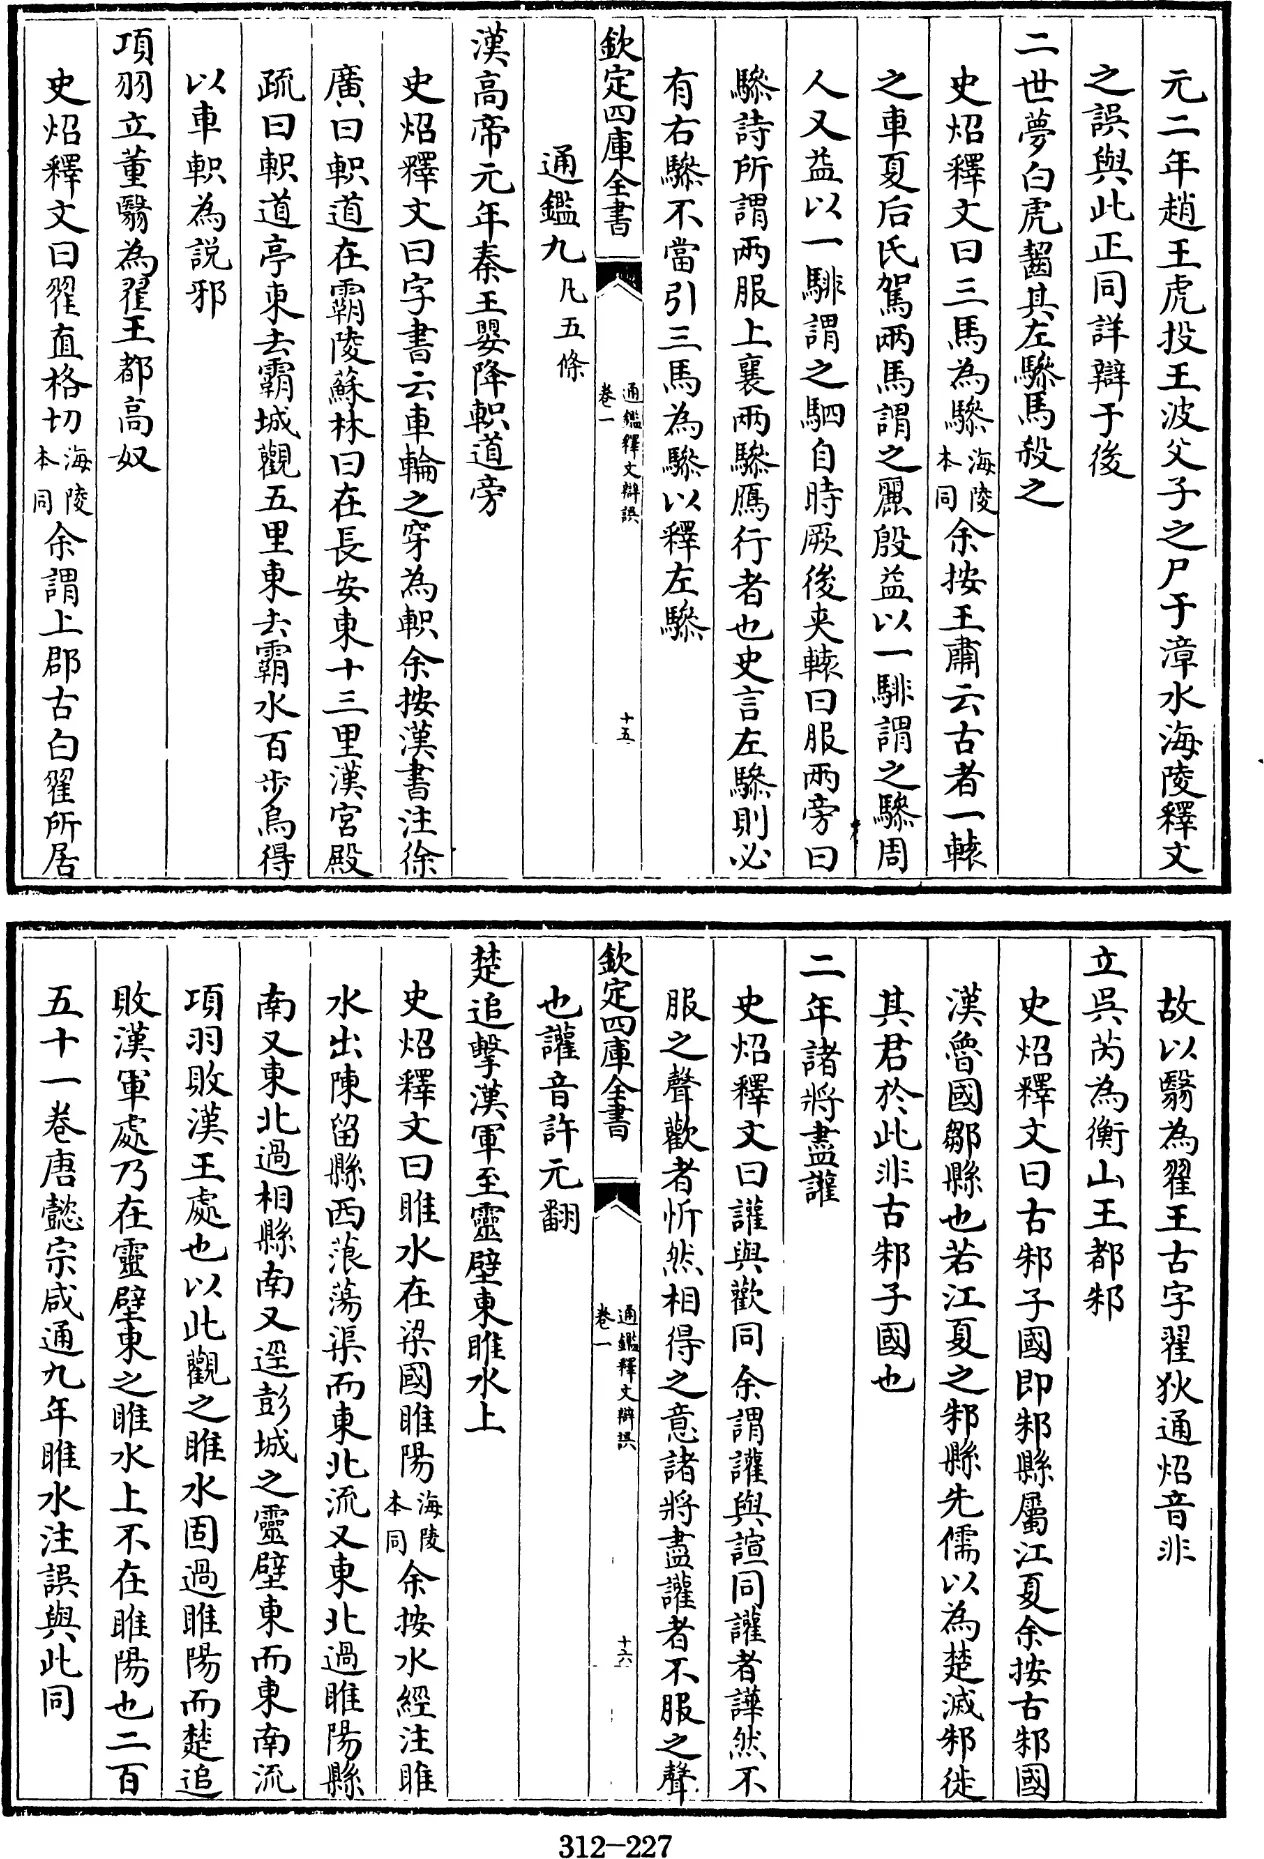 元二年趙王虎投王波父子之尸于漳水海陵釋文
之誤與此正同詳辯于後
二世夢白虎齧其左驂馬殺之
史炤釋文曰三馬為驂海陵本同余按王肅云古者一轅
之車夏后氏駕兩馬謂之麗殷益以一騑謂之驂周
人又益以一騑謂之駟自時厥後夾轅曰服兩旁曰
驂詩所謂兩服上襄兩驂鴈行者也史言左驂則必
有右驂不當引三馬為驂以釋左驂
欽定四庫全書
通鑑釋文辯誤
卷一
十五
通鑑九凡五條
漢高帝元年秦王嬰降軹道旁
史炤釋文曰字書云車輪之穿為軹余按漢書注徐
廣曰軹道在霸陵蘇林曰在長安東十三里漢宮殿
疏曰軹道亭東去霸城觀五里東去霸水百步烏得
以車軹為説邪
項羽立董翳為翟王都高奴
史炤釋文曰翟直格切海陵本同余謂上郡古白翟所居
故以翳為翟王古字翟狄通炤音非
立吳芮為衡山王都邾
史炤釋文曰古邾子國即邾縣屬江夏余按古邾國
漢魯國鄒縣也若江夏之邾縣先儒以為楚滅邾徙
其君於此非古邾子國也
二年諸將盡讙
史炤釋文曰讙與歡同余謂讙與諠同讙者譁然不
服之聲歡者忻然相得之意諸將盡讙者不服之聲
欽定四庫全書
通鑑釋文辯誤
卷一
十六
也讙音許元翻
楚追擊漢軍至靈壁東睢水上
史炤釋文曰睢水在梁國睢陽海陵本同余按水經注睢
水出陳留縣西蒗蕩渠而東北流又東北過睢陽縣
南又東北過相縣南又逕彭城之靈壁東而東南流
項羽敗漢王處也以此觀之睢水固過睢陽而楚追
敗漢軍處乃在靈壁東之睢水上不在睢陽也二百
五十一卷唐懿宗咸通九年睢水注誤與此同
312-227